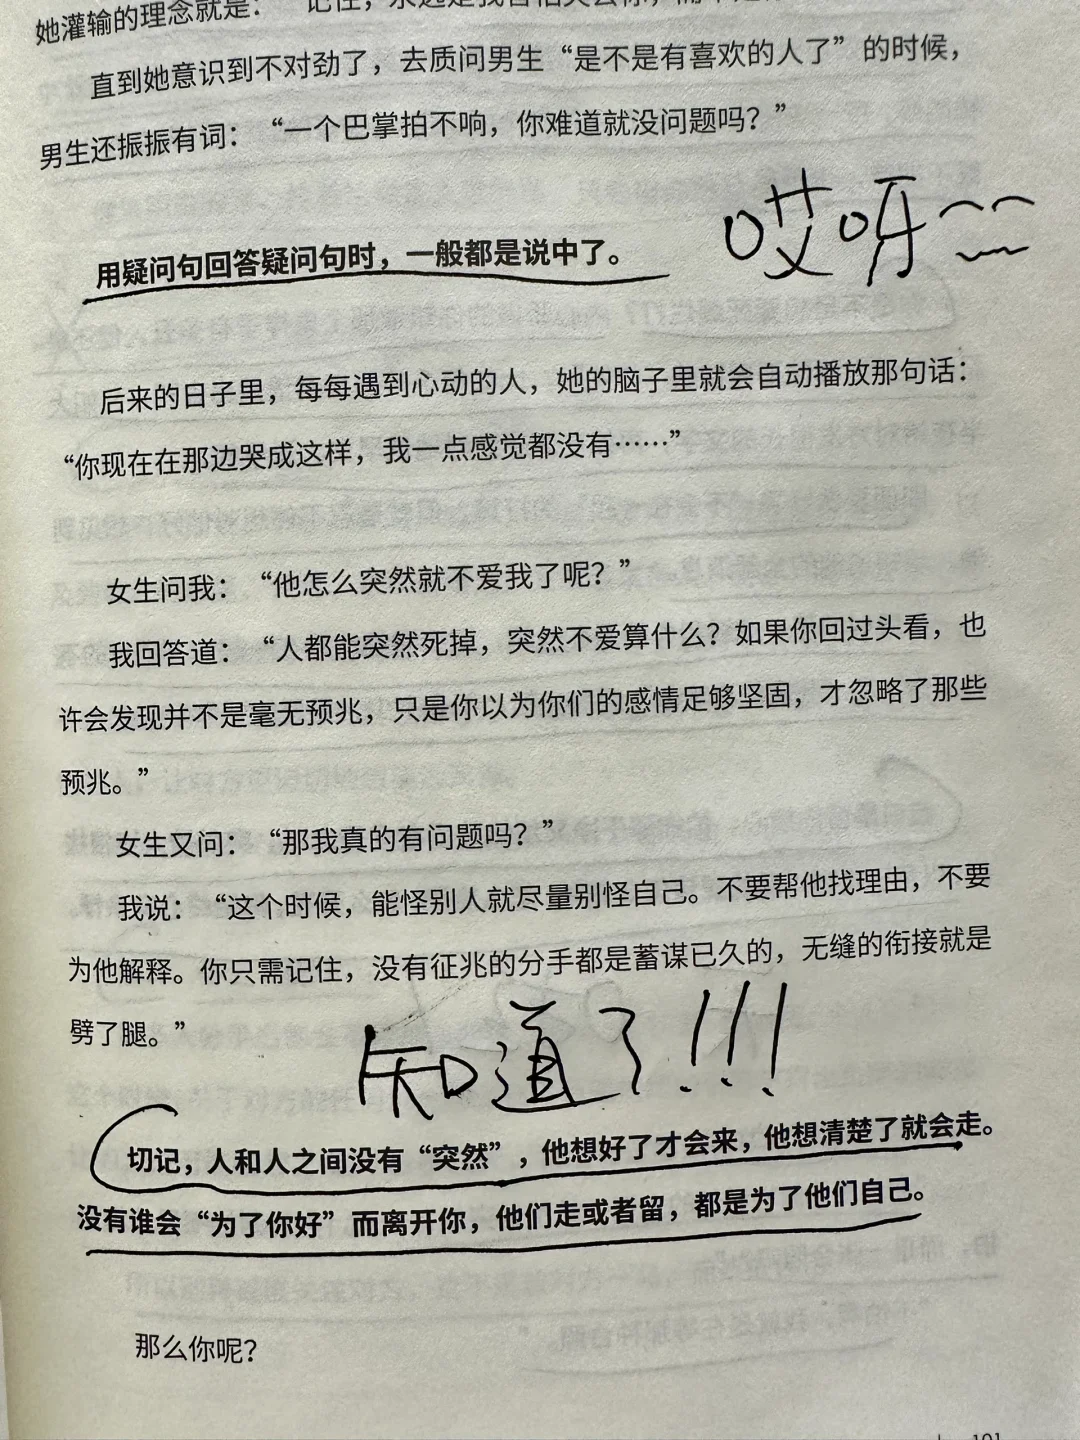 她灌输的理念就是：“记住，永远是我
直到她意识到不对劲了，去质问男生“是不是有喜欢的人了”的时候，
男生还振振有词：“一个巴掌拍不响，你难道就没问题吗？”
哎呀
用疑问句回答疑问句时，一般都是说中了。
后来的日子里，每每遇到心动的人，她的脑子里就会自动播放那句话：
“你现在在那边哭成这样，我一点感觉都没有……”
女生问我：“他怎么突然就不爱我了呢？”
我回答道：“人都能突然死掉，突然不爱算什么？如果你回过头看，也
许会发现并不是毫无预兆，只是你以为你们的感情足够坚固，才忽略了那些
预兆。”
女生又问：“那我真的有问题吗？”
我说：“这个时候，能怪别人就尽量别怪自己。不要帮他找理由，不要
为他解释。你只需记住，没有征兆的分手都是蓄谋已久的，无缝的衔接就是
劈了腿。”
知道了!!!
切记，人和人之间没有“突然”，他想好了才会来，他想清楚了就会走。
没有谁会“为了你好”而离开你，他们走或者留，都是为了他们自己。
那么你呢？
101